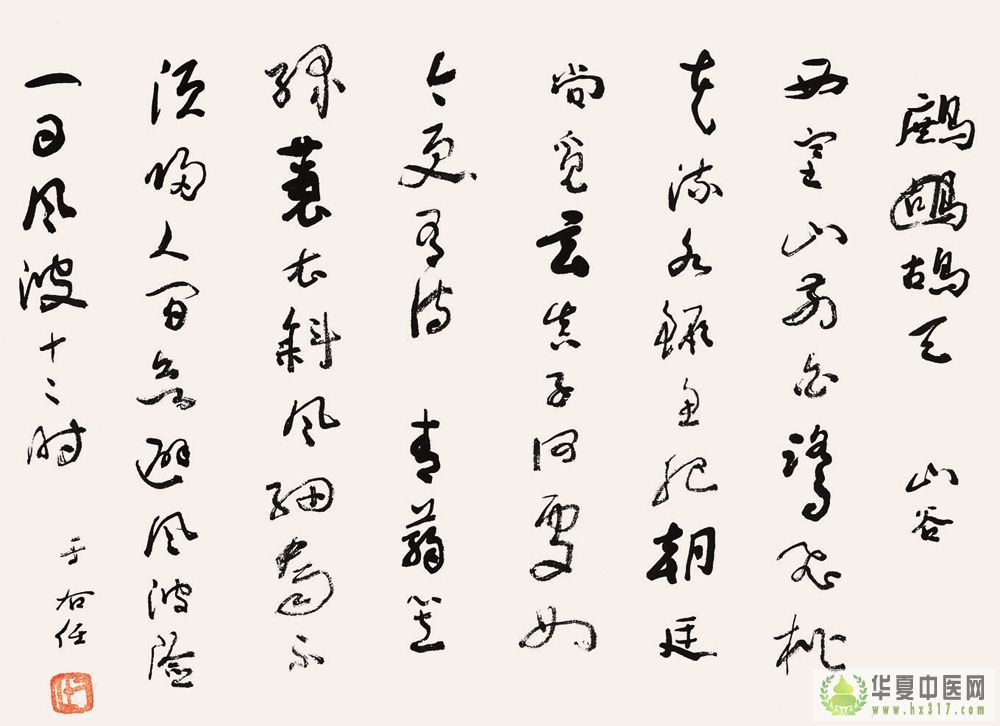 鷓鴣天 山谷
西塞山前白鷺飛桃
花流水鱖魚肥朝廷
尚覓玄真子何處如
今更有詩 青蒻笠
綠蓑衣斜風細雨不
須歸人間欲避風波險
一日風波十二時
于右任
华夏中医网
www.hx317.com